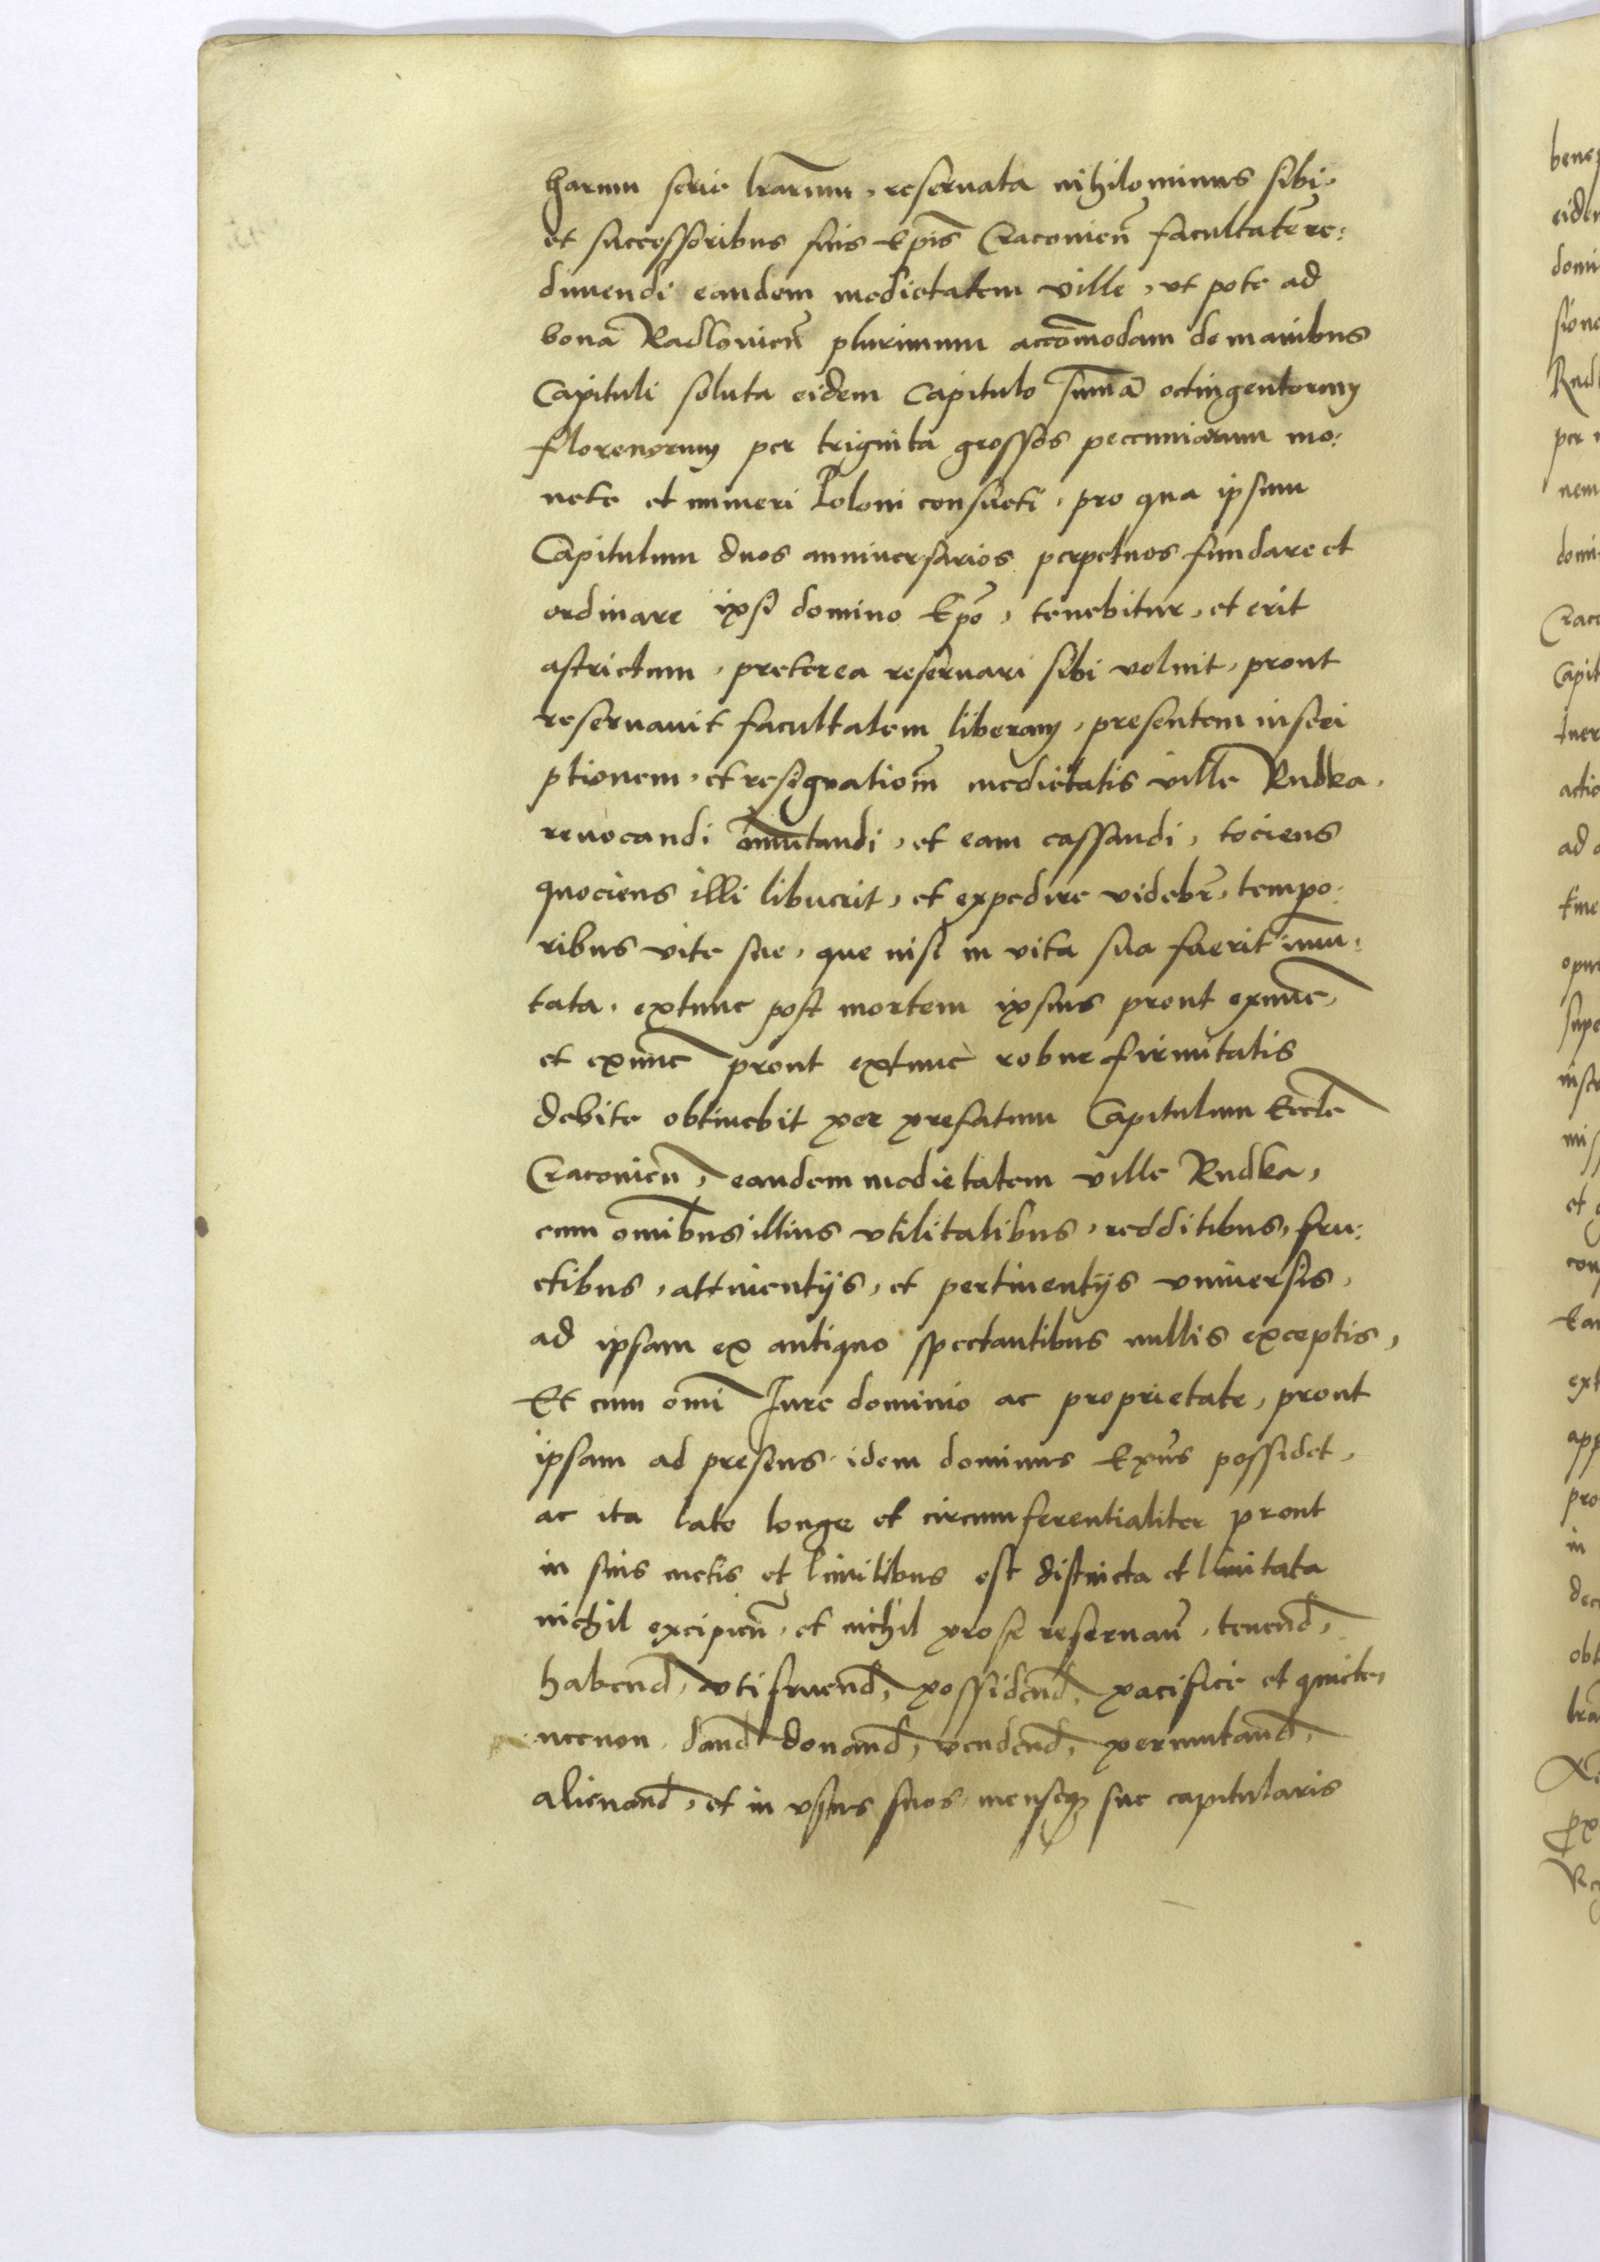 harum serie lrarum, reseruata nihilominus sibi
et successoribus suis Epis Cracouien facultate re:
dimendi eandem medietatem ville, vt pote ad
bona Radlouien plurimum accomodam de manibus
Capituli soluta eidem Capitulo suma octingentorum
florenorum per triginta grossos pecuniarum mo:
nete et numeri Poloni consueti, pro qua ipsum
Capitulum duos anniuersarios perpetuos fundare et
ordinare ipsi domino Epo, tenebitur, et erit
astrictum, preterea reseruari sibi voluit, prout
reseruauit facultatem liberam, presentem inscri
ptionem, et resignationem medietatis ville Rudka,
reuocandi imutandi, et eam cassandi, tociens
quociens illi libuerit, et expedire videbr, tempo:
ribus vite sue, que nisi in vita sua fuerit imu:
tata, extunc post mortem ipsius prout exnunc,
et exnunc prout extunc robur firmitatis
debite obtinebit per prefatum Capitulum Eccle
Cracouien, eandem medietatem ville Rudka,
cum omibus illius vtilitatibus, redditibus, fru:
ctibus, attinentijs, et pertinentijs vniuersis,
ad ipsam ex antiquo spectantibus nullis exceptis,
Et cum omi Iure dominio ac proprietate, prout
ipsam ad presens idem dominus Epus possidet,
ac ita late longe et circumferentialiter prout
in suis metis et limitibus est distincta et limitata
nichil excipien, et nichil pro se reseruan, tenend,
habend, vtifruend, possidend, pacifice et quiete,
necnon dand donand, vendend, permutand,
alienand, et in vsus suos menseq sue capitularis